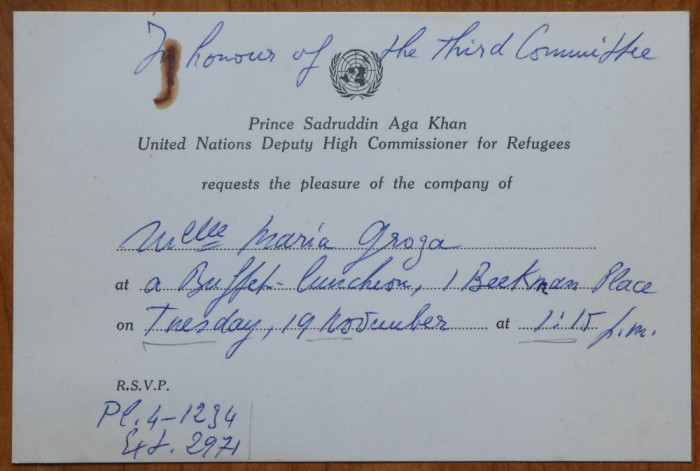 In honour of the Third Committee
Prince Sadruddin Aga Khan
United Nations Deputy High Commissioner for Refugees
requests the pleasure of the company of
Mlle Maria Groza
at a Buffet-luncheon, 1 Beekman Place
on Tuesday, 19 November at 1:15 p.m.
R.S.V.P.
Pl. 4-1234
Ext. 2971